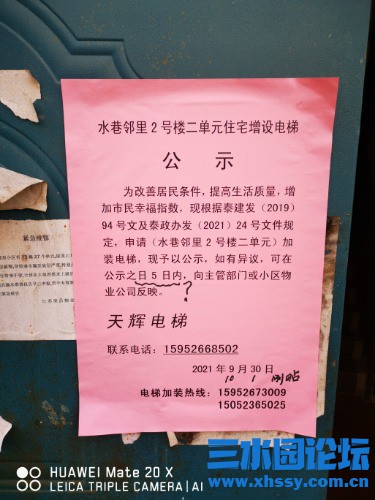 水巷邻里2号楼二单元住宅增设电梯
公 示
为改善居民条件,提高生活质量,增
加市民幸福指数,现根据泰建发(2019)
94号文及泰政办发(2021)24号文件规
定,申请(水巷邻里2号楼二单元)加
装电梯,现予以公示,如有异议,可在
公示之日5日内,向主管部门或小区物
业公司反映。
?
天辉电梯
联系电话:15952668502
2021年9月30日
10 1 刚贴
电梯加装热线:15952673009
15052365025
HUAWEI Mate 20 X
LEICA TRIPLE CAMERA | AI
三水园论坛
www.xhssy.com.cn